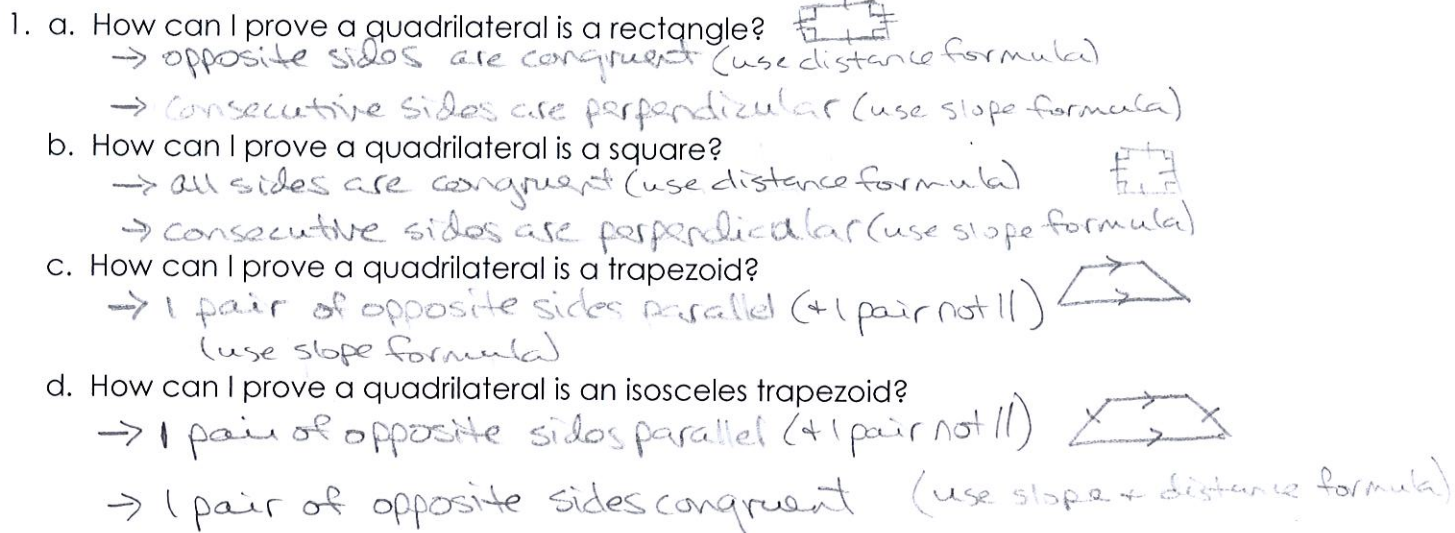 1. a. How can I prove a quadrilateral is a rectangle?
→ opposite sides are congruent (use distance formula)
→ consecutive sides are perpendicular (use slope formula)
b. How can I prove a quadrilateral is a square?
→ all sides are congruent (use distance formula)
→ consecutive sides are perpendicular (use slope formula)
c. How can I prove a quadrilateral is a trapezoid?
→ 1 pair of opposite sides parallel (+ 1 pair not ||)
(use slope formula)
d. How can I prove a quadrilateral is an isosceles trapezoid?
→ 1 pair of opposite sides parallel (+ 1 pair not ||)
→ 1 pair of opposite sides congruent (use slope + distance formula)